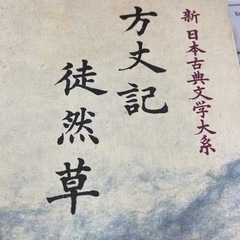 新 日本古典文学大系
方丈記
徒然草